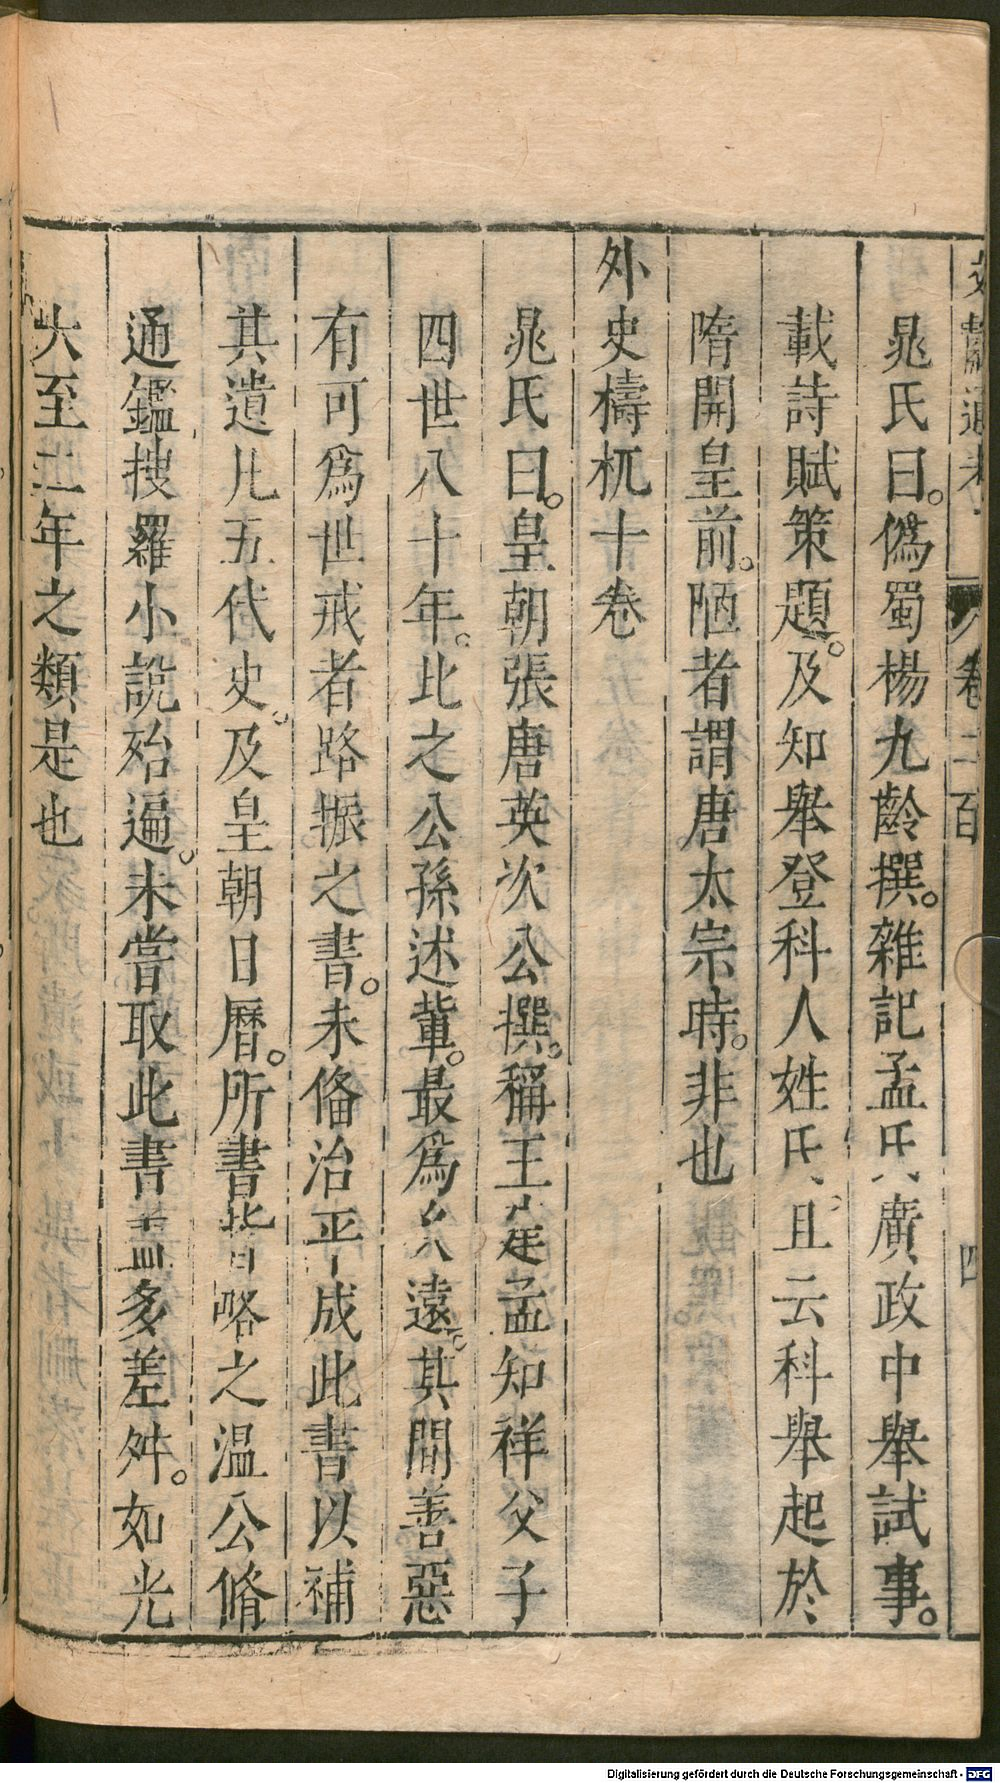 文獻通考 卷二百 四
晁氏曰。僞蜀楊九齡撰。雜記孟氏廣政中舉試事。
載詩賦策題。及知舉登科人姓氏。且云科舉起於
隋開皇前。陋者謂唐太宗時。非也
外史檮杌十卷
晁氏曰。皇朝張唐英次公撰。稱王建孟知祥父子
四世八十年。比之公孫述輩。最爲久遠。其間善惡
有可爲世戒者路振之書。未俻治平成此書以補
其遺凡五代史。及皇朝日曆。所書皆略之温公脩
通鑑搜羅小說殆遍。未嘗取此書盖多差舛。如光
大至三年之類是也
Digitalisierung gefördert durch die Deutsche Forschungsgemeinschaft - DFG